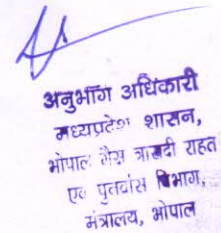 अनुभाग अधिकारी
मध्यप्रदेश शासन,
भोपाल गैस त्रासदी राहत
एवं पुनर्वास विभाग,
मंत्रालय, भोपाल